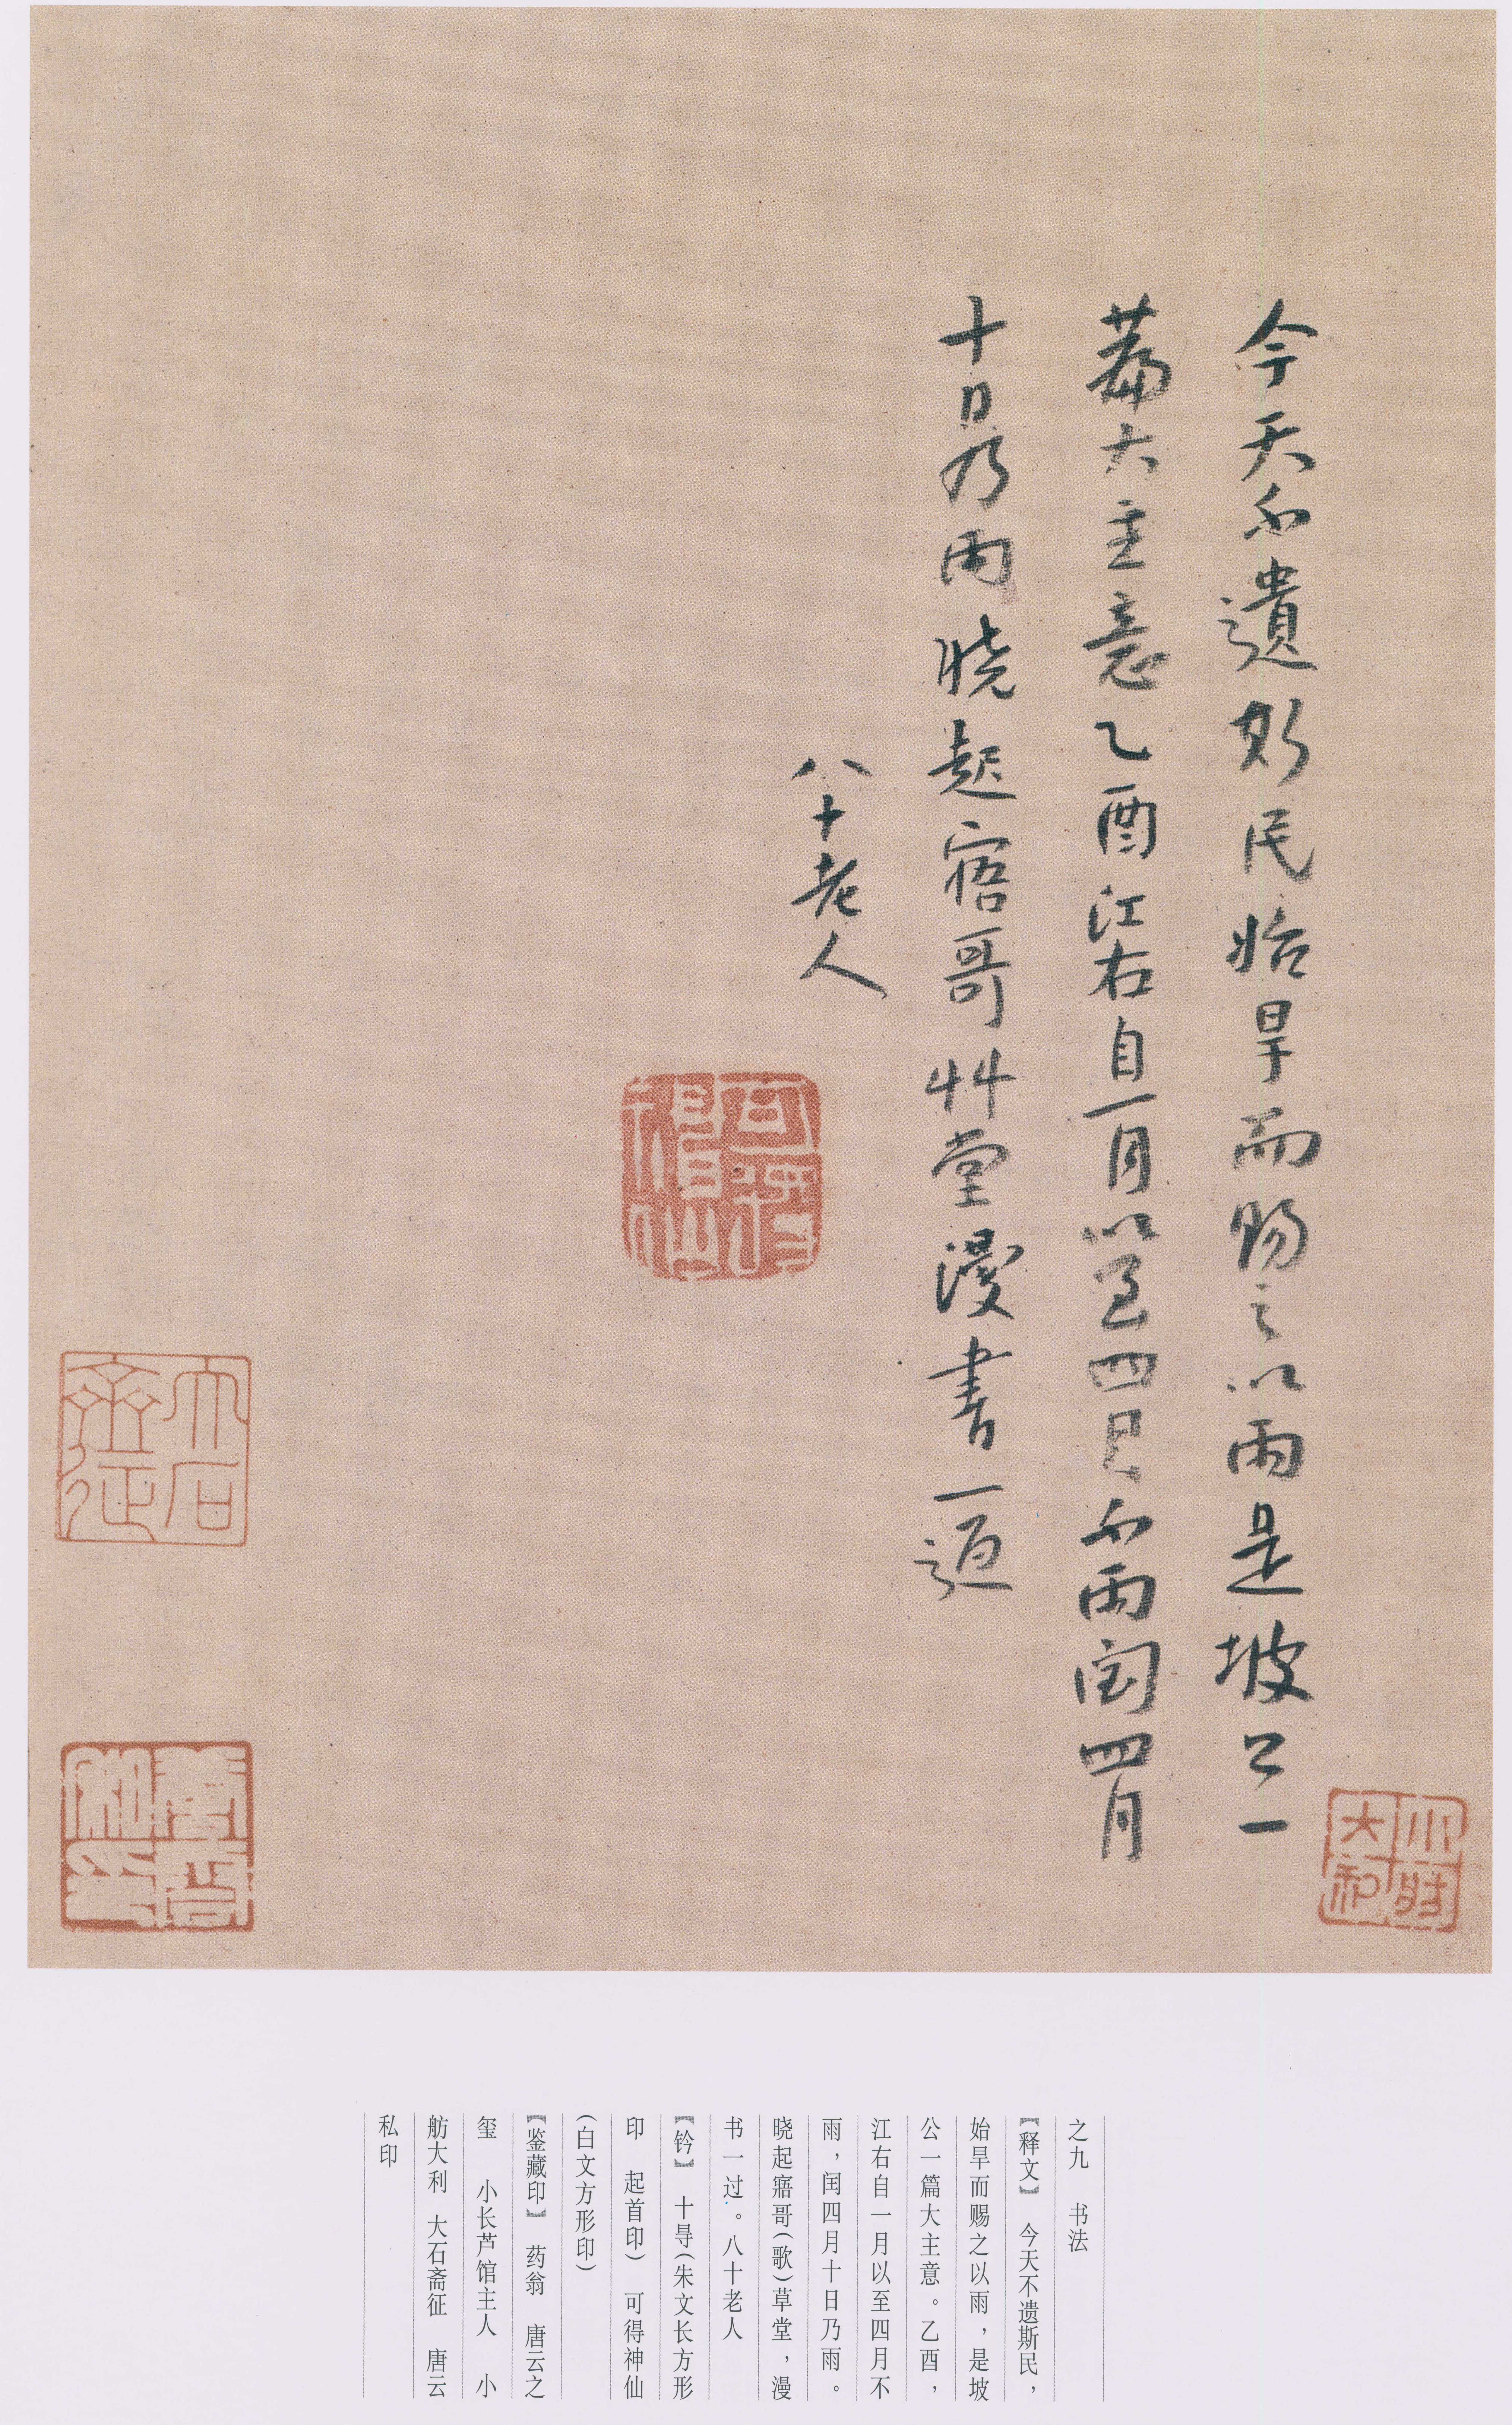 今天不遺斯民始旱而賜之以雨是坡公一
篇大主意乙酉江右自一月以至四月不雨闰四月
十日乃雨晓起寤哥艸堂漫書一過
八十老人
可得神仙
大石斋征
大利
之九 书法
【释文】 今天不遗斯民，
始旱而赐之以雨，是坡
公一篇大主意。乙酉，
江右自一月以至四月不
雨，闰四月十日乃雨。
晓起寤哥（歌）草堂，漫
书一过。八十老人
【钤】 十㝵（朱文长方形
印 起首印） 可得神仙
（白文方形印）
【鉴藏印】 药翁 唐云之
玺 小长芦馆主人 小
舫大利 大石斋征 唐云
私印